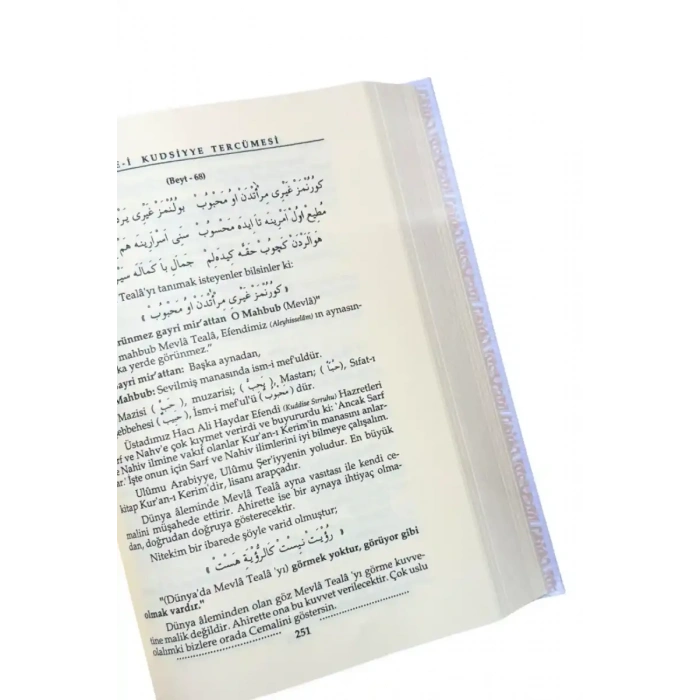 E-İ KUDSİYYE TERCÜMESİ
(Beyt - 68)
كورُنْمَزْ غَيْرِى مِرْأَتْدَنْ اوُ مَحْبُوبْ بولُنْمَزْ غَيْرِى
مُطِيعْ اوُلْ أَمْرِينَه تَا اِيدَه مَحْسُوبْ سَنِى اَسْرَارِينَه هَمْ
هَوَالَرْدَنْ كَچُوبْ حَقَّه كِيدَه لِمْ جَمَالِ بَا كَمَالَه
Tealâ'yı tanımak isteyenler bilsinler ki:
« كورُنْمَزْ غَيْرِى مِرْأَتْدَنْ اوُ مَحْبُوبْ »
rünmez gayri mir'attan O Mahbub (Mevlâ)"
mahbub Mevlâ Tealâ, Efendimiz (Aleyhisselâm)ın aynasın-
ka yerde görünmez."
ayri mir'attan: Başka aynadan,
Mahbub: Sevilmiş manasında ism-i mef'uldür.
Mazisi (حَبَّ), muzarisi; (يُحِبُّ), Mastan; (حُبًّا), Sıfat-ı
ebbehesi (حَبِيبْ), İsm-i mef'ul'ü (مَحْبُوبْ) dür.
Üstadımız Hacı Ali Haydar Efendi (Kuddise Sırruhu) Hazretleri
f ve Nahv'e çok kıymet verirdi ve buyururdu ki: 'Ancak Sarf
ve Nahiv ilmine vakıf olanlar Kur'an-ı Kerim'in manasını anlar-
lar.' İşte onun için Sarf ve Nahiv ilimlerini iyi bilmeye çalışalım.
Ulûmu Arabiyye, Ulûmu Şer'iyyenin yoludur. En büyük
kitap Kur'an-ı Kerim'dir, lisanı arapçadır.
Dünya âleminde Mevlâ Tealâ ayna vasıtası ile kendi ce-
malini müşahede ettirir. Ahirette ise bir aynaya ihtiyaç olma-
dan, doğrudan doğruya gösterecektir.
Nitekim bir ibarede şöyle varid olmuştur;
« رُؤْيَتْ نِيسْتْ كَالرُّؤْيَةِ هَسْتْ »
"(Dünya'da Mevlâ Tealâ 'yı) görmek yoktur, görüyor gibi
olmak vardır."
Dünya âleminden olan göz Mevlâ Tealâ 'yı görme kuvve-
tine malik değildir. Ahirette ona bu kuvvet verilecektir. Çok uslu
olalımki bizlere orada Cemalini göstersin.
251